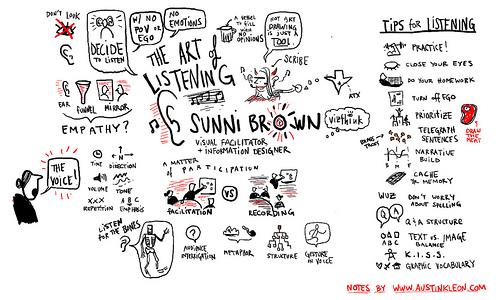 DON'T LOOK
DECIDE
TO LISTEN
W/ NO
POV OR
EGO
NO
EMOTIONS
A VESSEL TO
FILL WITH
NO
OPINIONS
NOT ART
DRAWING
IS JUST A
TOOL
SCRIBE
THE ART OF
LISTENING
EAR
FUNNEL
MIRROR
EMPATHY?
SUNNI BROWN
VISUAL FACILITATOR
+ INFORMATION DESIGNER
ATX
VIZTHINK
THE
VOICE!
TIME
DIRECTION
N
VOLUME
TONE
XXX
REPETITION
A B C
EMPHASIS
A MATTER
OF PARTICIPATION
FACILITATION
VS
RECORDING
LISTEN
FOR THE BONES
?
AUDIENCE
INTERROGATION
METAPHOR
STRUCTURE
GESTURE
IN VOICE
TIPS FOR LISTENING
PRACTICE!
CLOSE YOUR EYES
DO YOUR HOMEWORK
TURN OFF EGO
PRIORITIZE
TELEGRAPH
SENTENCES
DRAW
THE
MEAT
NARRATIVE
BUILD
CACHE
MEMORY
WUZ
DON'T WORRY
ABOUT SPELLING
Q A
Q + A STRUCTURE
A B C
TEXT VS. IMAGE
BALANCE
K.I.S.S.
GRAPHIC VOCABULARY
NOTES BY WWW.AUSTINKLEON.COM